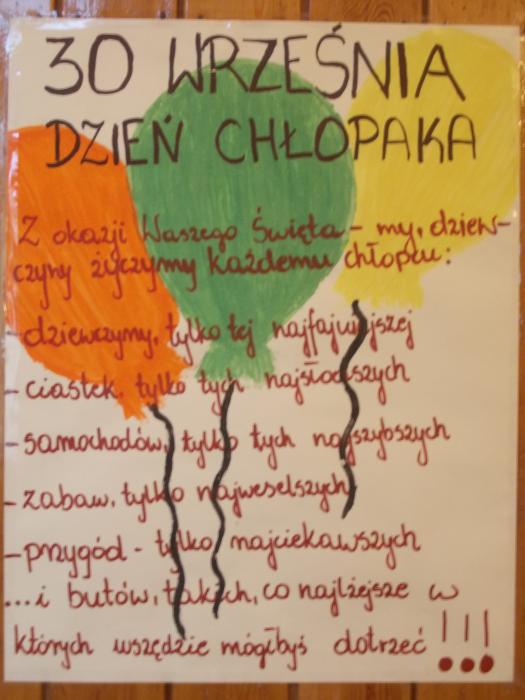 30 WRZEŚNIA
DZIEŃ CHŁOPAKA
Z okazji Waszego Święta - my, dziew-
czyny życzymy każdemu chłopcu:
- dziewczyny, tylko tej najfajniejszej
- ciastek, tylko tych najsłodszych
- samochodów, tylko tych najszybszych
- zabaw, tylko najweselszych
- przygód - tylko najciekawszych
...i butów, takich, co najlżejsze w
których wszędzie mógłbyś dotrzeć !!!